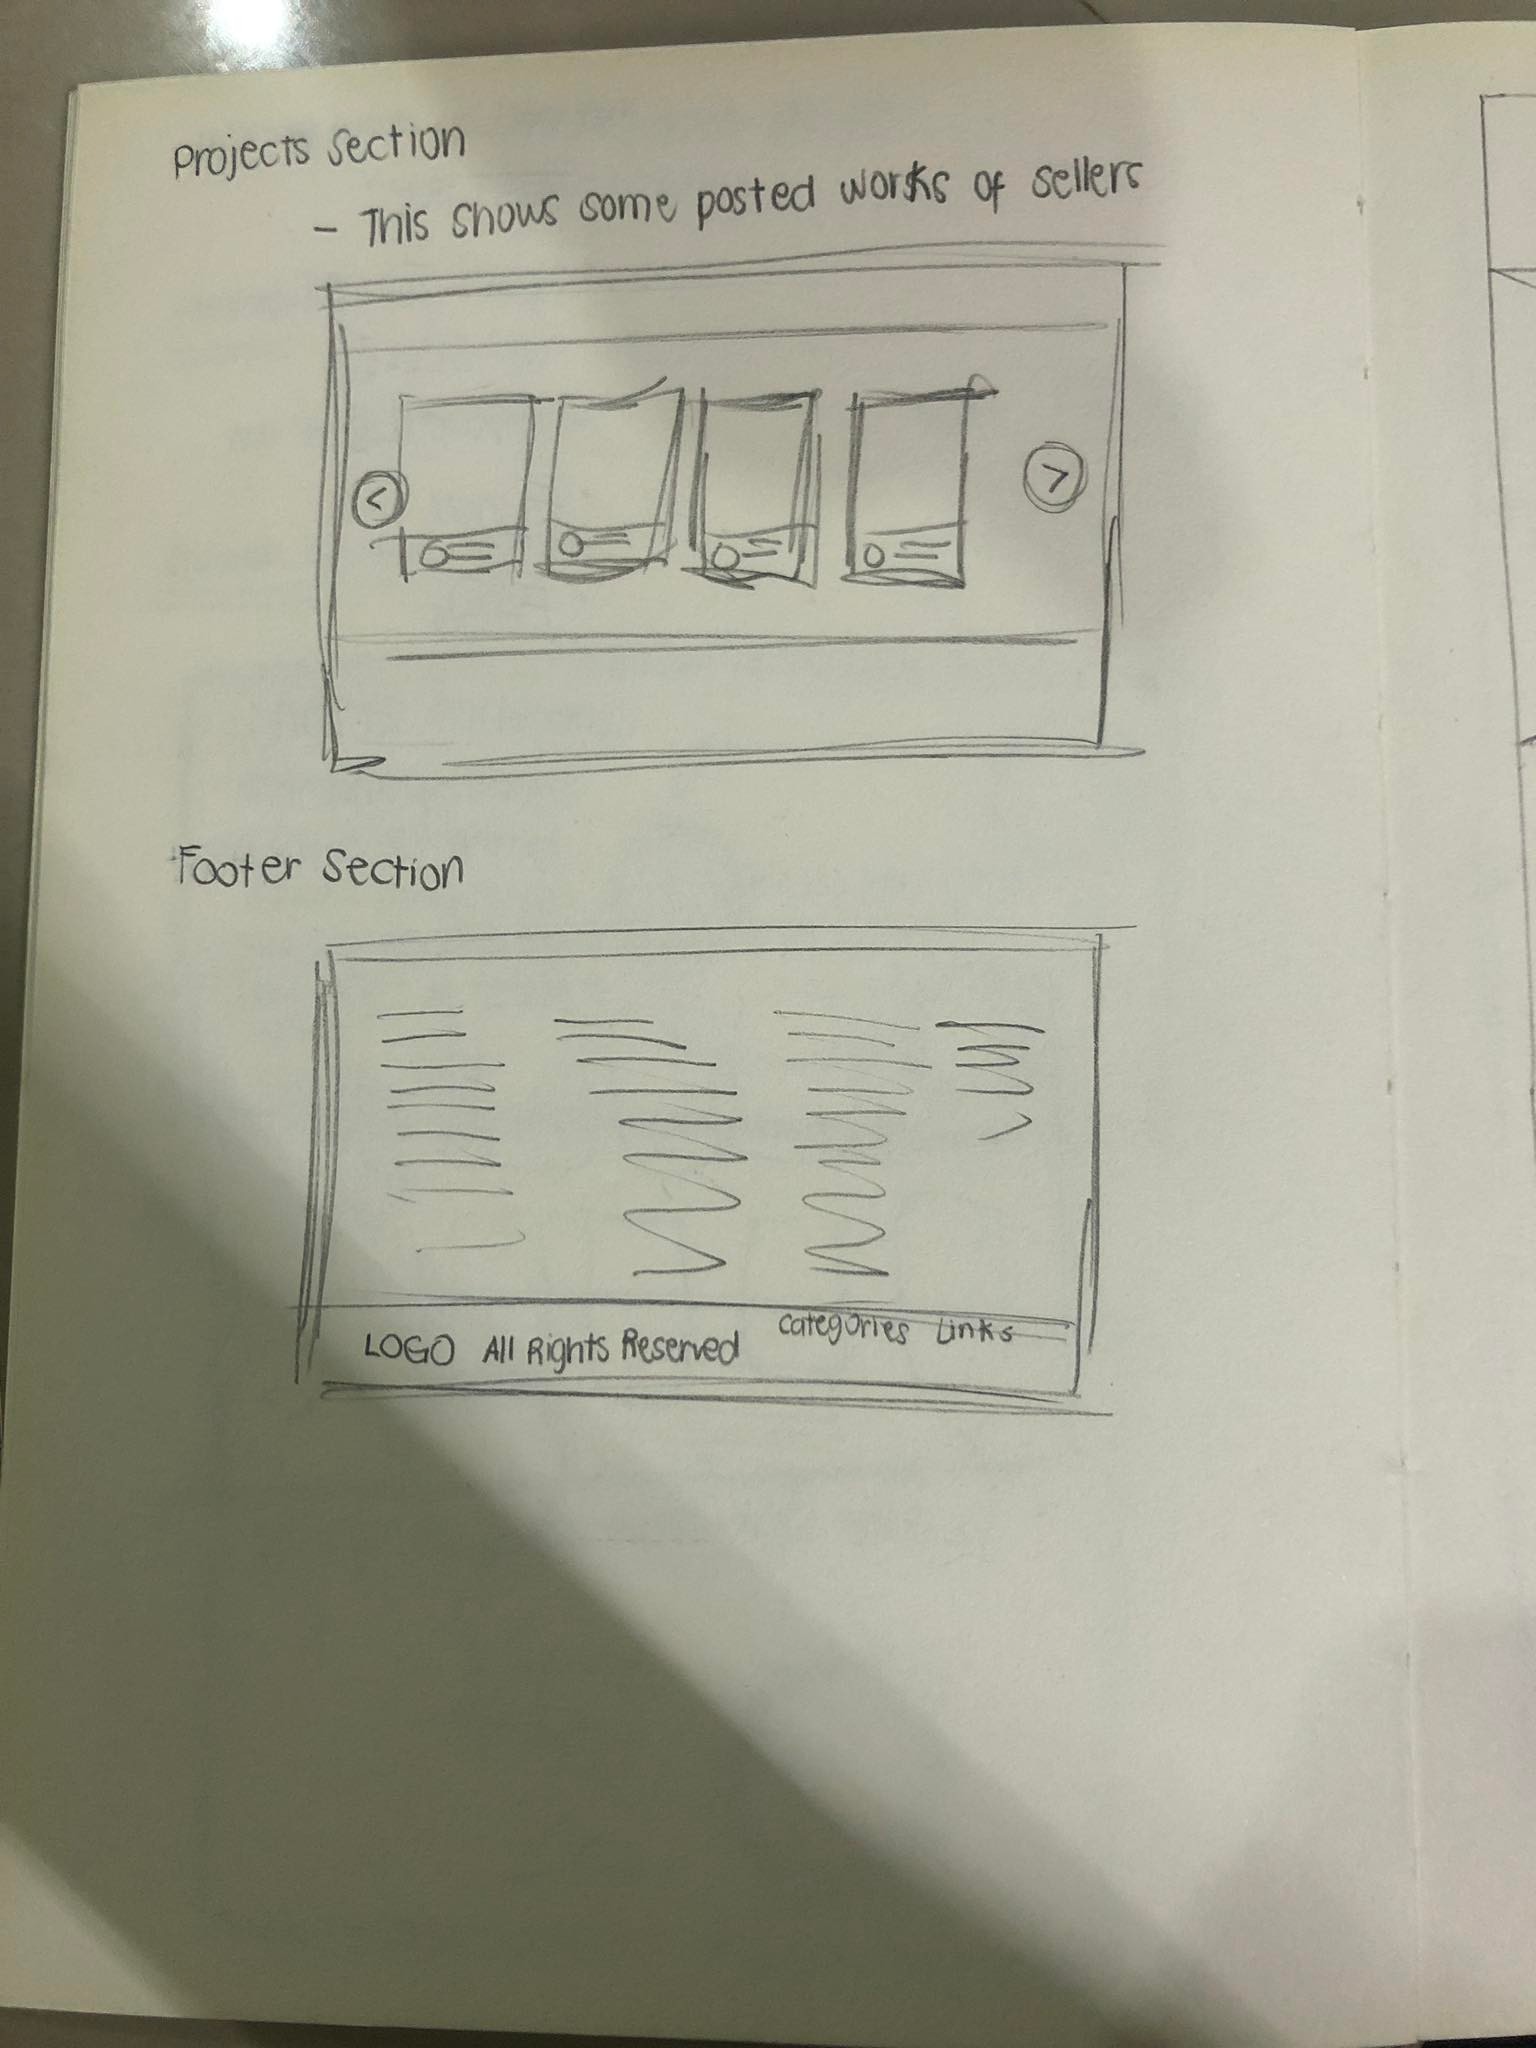 Projects Section
- This shows some posted works of sellers
<
>
Footer Section
LOGO All Rights Reserved categories Links